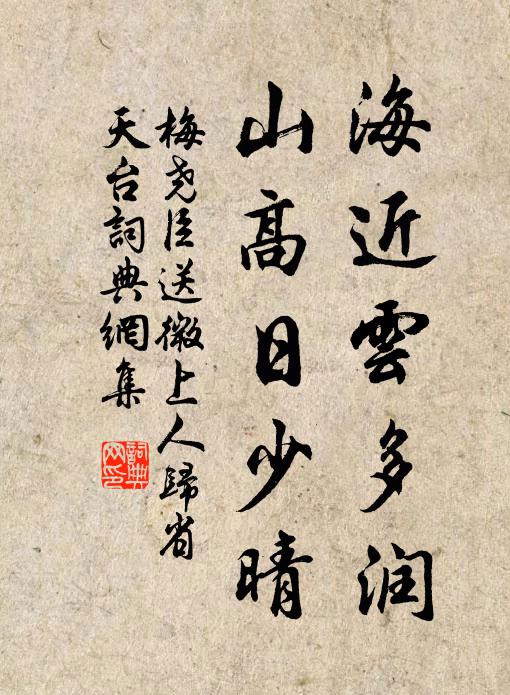 海近雲多润
山高日少晴
梅尧臣送微上人歸省
天台詞典網集
詞典网印